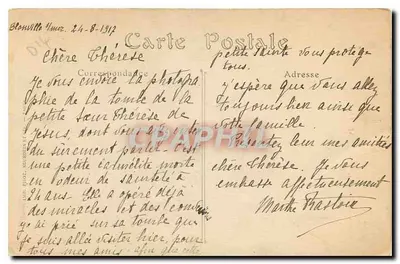 Blonville s/mer. 24-8-1917
Carte Postale
Correspondance
Adresse
Chère Thérèse
Je vous envoie la photogra
phie de la tombe de la
petite Sœur Thérèse de
Jésus, dont vous
du sûrement parler. C'est
une petite carmélite morte
en odeur de sainteté à
24 ans. Elle a opéré déjà
des miracles et des
j'ai prié sur sa tombe que
je suis allée visiter hier, pour
tous mes amis. afin que cette
petite Sainte vous protège
tous.
J'espère que vous allez
toujours bien ainsi que
votre famille.
leur mes amitiés
chère Thérèse. Je vous
embrasse affectueusement
Marthe
CPAPHIL